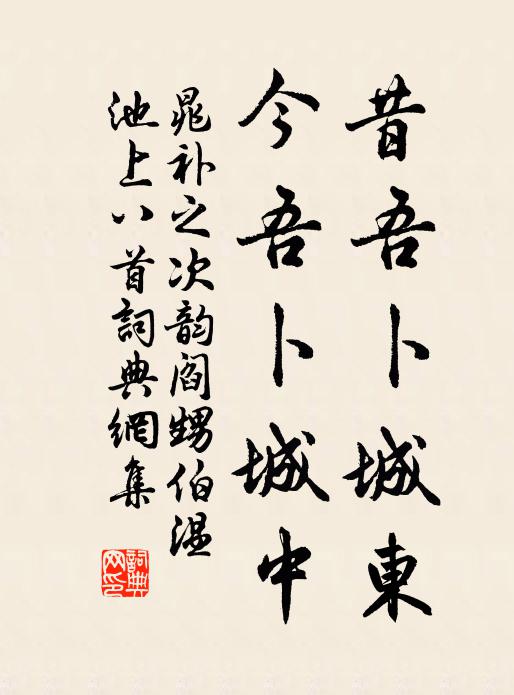 昔吾卜城東
今吾卜城中
晁补之次韵阎甥伯温
池上八首詞典網集
詞典网印